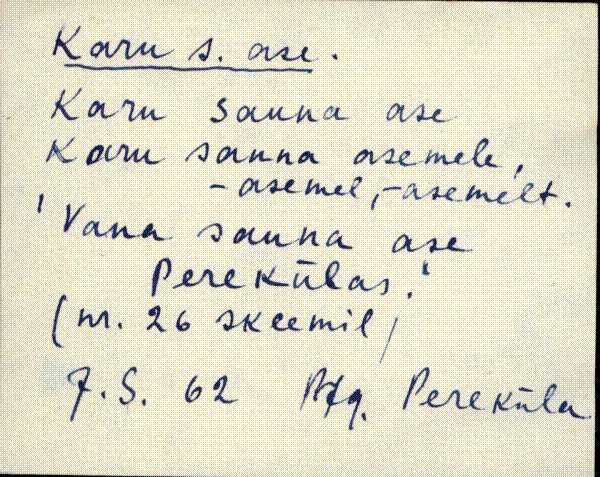 Karu s. ase.
Karu sauna ase
Karu sauna asemele,
-asemel, -asemelt.
'Vana sauna ase
Perekülas.'
(nr. 26 skeemil)
7.S. 62 Pereküla